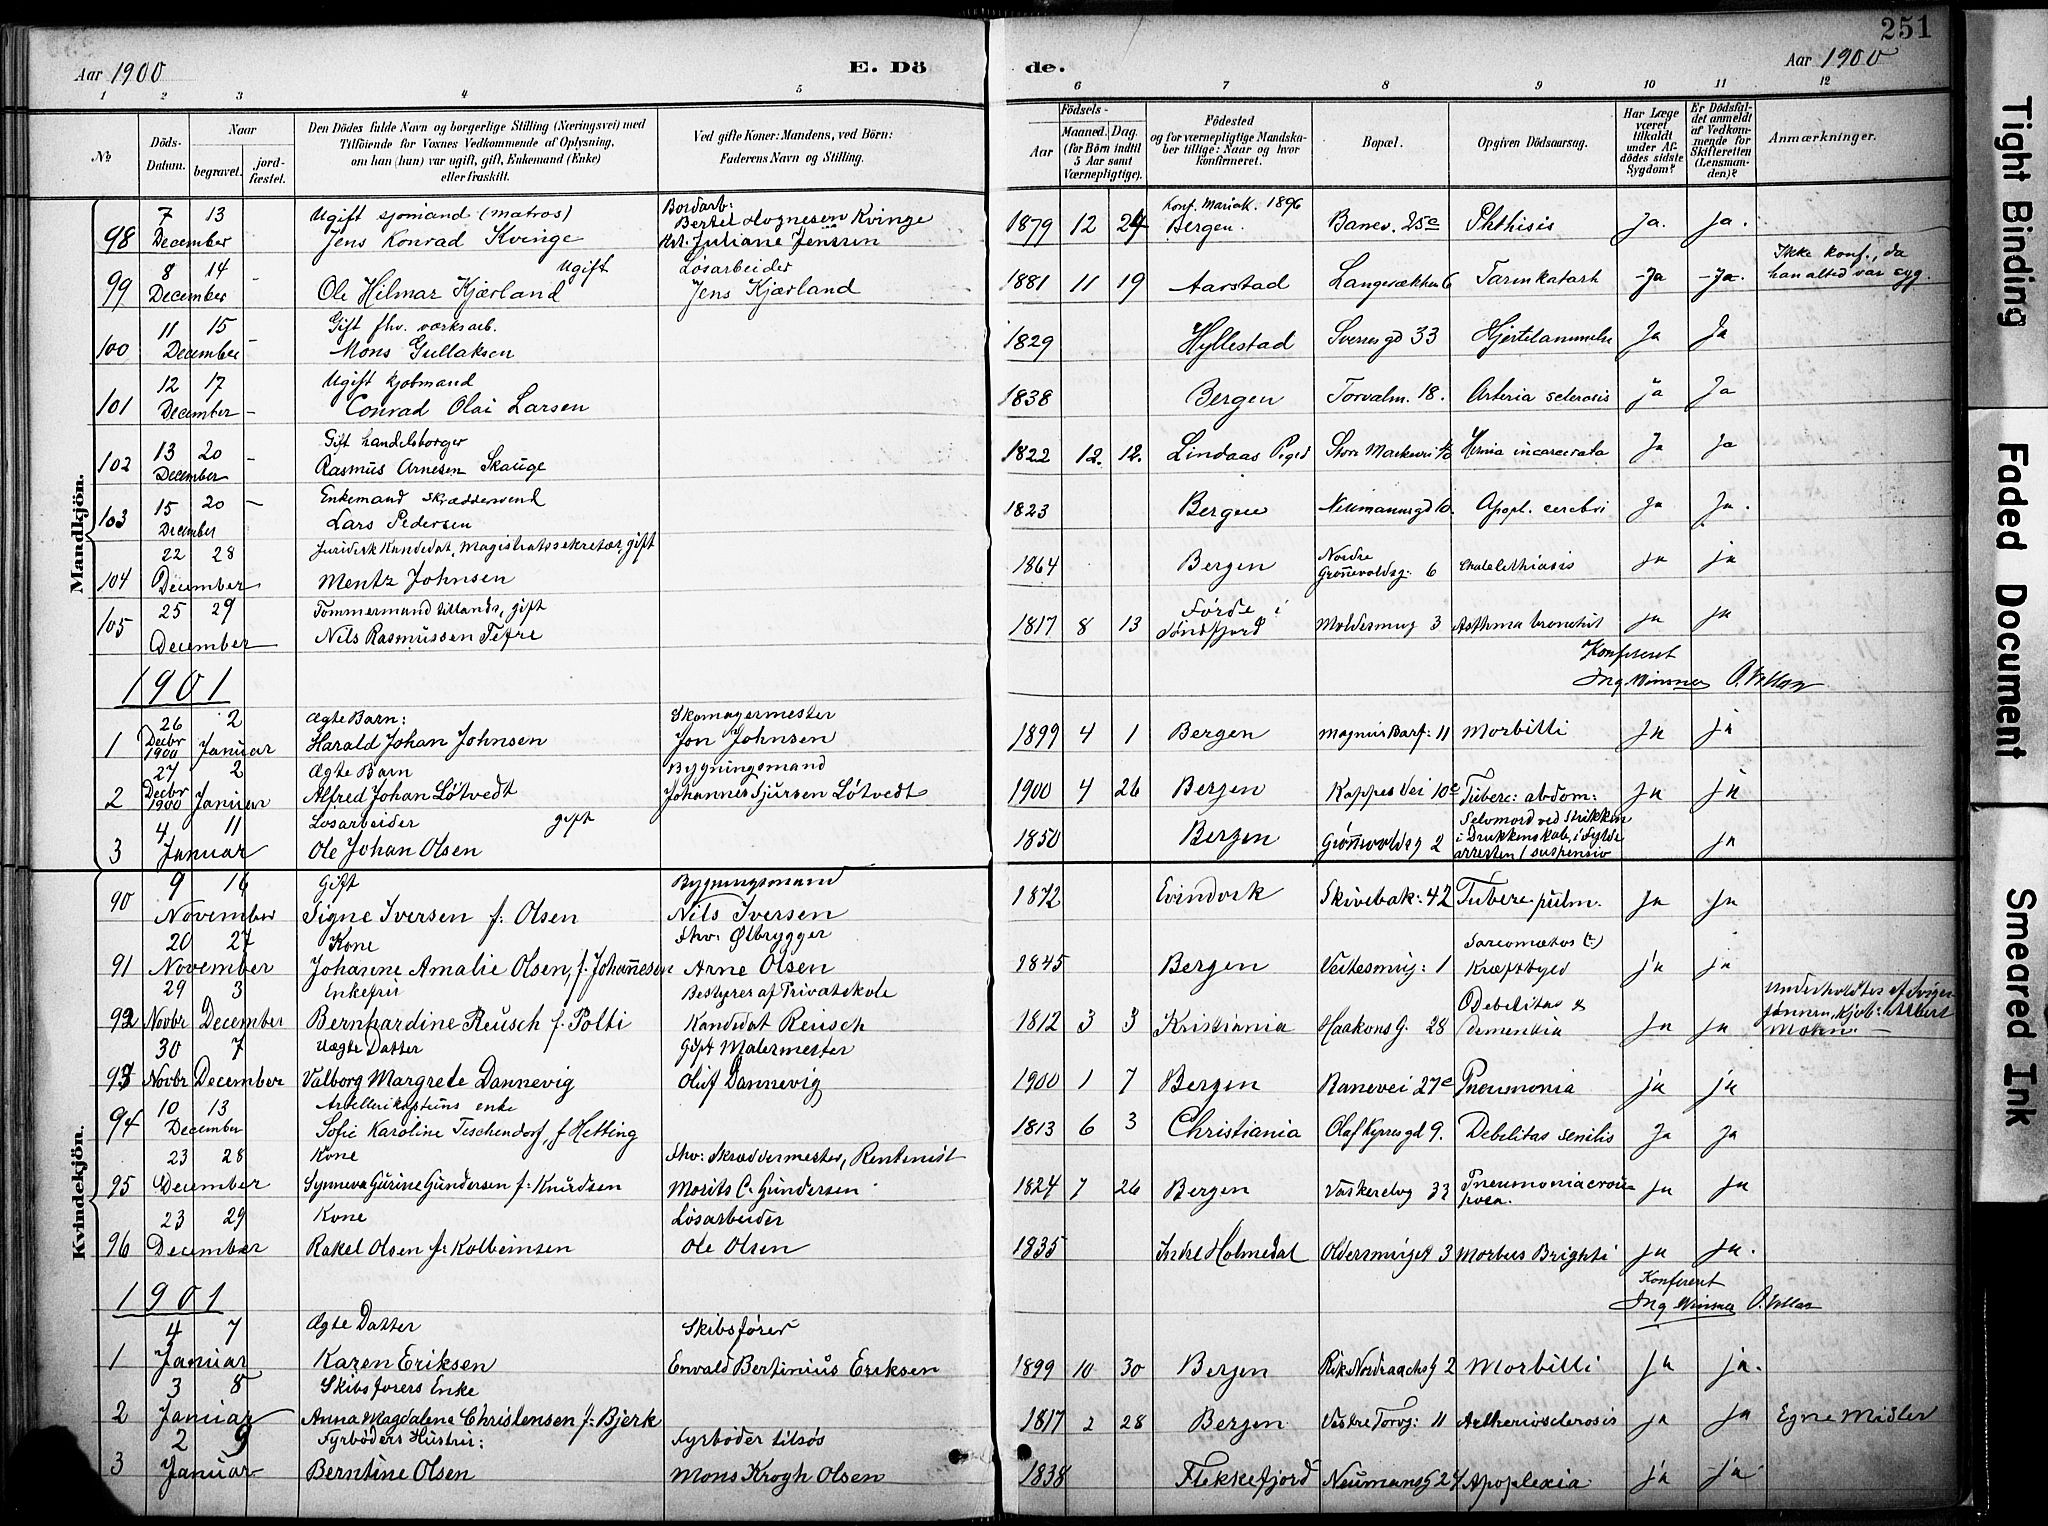 251
Aar 1900
E. Dö
de.
Aar 1900
1 2 3 4 5 6 7 8 9 10 11 12
No
Döds-Datum.
Naar
begravet.
jord-fæstet.
Den Dödes fulde Navn og borgerlige Stilling (Næringsvei) med
Tilföiende for Voxnes Vedkommende af Oplysning,
om han (hun) var ugift, gift, Enkemand (Enke)
eller fraskilt.
Ved gifte Koner: Mandens, ved Börn:
Faderens Navn og Stilling.
Födsels-
Aar
Maaned. Dag.
(for Börn indtil
5 Aar samt
Værnepligtige).
Födested
og for værnepligtige Mandska-
ber tillige: Naar og hvor
konfirmeret.
Bopæl.
Opgiven Dödsaarsag.
Har Læge
været
tilkaldt
under Af-
dödes sidste
Sygdom?
Er Dödsfal-
det anmeldt
af Vedkom-
mende for
Skifteretten
(Lensman-
den)?
Anmærkninger.
Mandkjön.
98 7 13 December Ugift sjømand (matros) Jens Konrad Kvinge Bordarb: Bertel Hognesen Kvinge Juliane Jenssen 1879 12 24 Konf. Mariak. 1896 Bergen. Banev. 25c Phthisis Ja. ja.
99 8 14 December - Ugift Ole Hilmar Kjærland Løsarbeider Jens Kjærland 1881 11 19 Aarstad 6 Tarmkatarh - Ja - Ja. Ikke konf., da han altid var syg.
100 11 15 December - Gift fhv. værksarb. Mons Gullaksen 1829 Hyllestad Sverresgd 33 Ja Ja
101 12 17 December - Ugift kjøbmand Conrad Olai Larsen 1838 Bergen Torvalm. 18. Arteria sclerosis ja Ja
102 13 20 December - Gift handelsborger Rasmus Arnesen Skauge 1822 12. 12. Lindaas Pgjd Store Hernia incarcerata Ja Ja
103 15 20 December - Enkemand skræddersvend Lars Pedersen 1823 Bergen Neumannsgd 10. Apopl. cerebri Ja Ja.
104 22 28 December Juridisk Kandedat, Magistratssekretær, gift Mentz Johnsen 1864 Bergen Nordre Grønnevoldsg: 6 ja ja
105 25 29 December Tømmermand tillands, gift Nils Rasmussen Tefre 1817 8 13 Førde i Søndfjord Moldesmug 3 Asthma bronchit ja ja
Konfereret
1901
1 26 Decbr 1900 2 Januar Ægte Barn: Harald Johan Johnsen Skomagermester Jon Johnsen 1899 4 1 Bergen Magnus Barf: 11 Morbilli Ja ja
2 27 Decbr 1900 2 Januar Ægte Barn Alfred Johan Løtvedt Bygningsmand Johannes Sjursen Løtvedt 1900 4 26 Bergen Kappes Vei 10c Tuberc: abdom: Ja ja
3 4 11 Januar Løsarbeider gift Ole Johan Olsen 1850 Bergen Grønnevoldsg 2 Selvmord ved Strikken i Drukkenskab, i Fylde arresten / suspensio ja
Kvindekjön.
90 9 16 November Gift Signe Iversen f: Olsen Bygningsmand Nils Iversen 1872 Evindvik Skivebak: 42 Tuberc pulm. Ja Ja
91 20 27 November Kone Johanne Amalie Olsen, f. Johannesen Fhv: Ølbrygger Arne Olsen 1845 Bergen Veitesmug: 1 Sarcomatos (?) Kræftsyld ja ja
92 29 3 Novbr December Enkefru Bernhardine Reusch f. Polti Bestyrer af Privatskole Kandedat Reusch 1812 3 3 Kristiania Haakons G. 28 Debelitas & dementia Ja ja Underholdtes af Sviger sønnen, kjøb: Albert Mohn. -
93 30 7 Novbr December Uægte Datter Valborg Margrete Dannevig Gift Malermester Oluf Dannevig 1900 1 7 Bergen Banevei 27c Pneumonia ja ja
94 10 13 December Artellerikapteins enke Sofie Karoline Tischendorf, f Hetting 1813 6 3 Christiania Olaf Kyrresgd 9. Debelitas senilis Ja Ja
95 23 28 December Kone Synneva Gurine Gundersen f: Knudsen Fhv: Skræddermester, Rentenist Morits C. Gundersen 1824 7 26 Bergen Vaskerelvg 33 Pneumonia crouposa. ja ja
96 23 29 December Kone Rakel Olsen f: Kolbeinsen Løsarbeider Ole Olsen 1835 Indre Holmedal Oldersmuget 3 Morbus Brighti ja ja.
Konfereret
1901
1 4 7 Januar Ægte Datter Karen Eriksen Skibsfører Enwald Bertinius Eriksen 1899 10 30 Bergen Rik. Nordraachs G 2 Morbilli Ja ja.
2 3 8 Januar Skibsførers Enke Anna Magdalene Christensen f: Bjerk 1817 2 28 Bergen Vestre Torvg: 11 Artheriosclerosis ja ja Egne Midler
3 2 9 Januar Fyrbøders Hustru: Berntine Olsen Fyrbøder tilsøs Mons Krogh Olsen 1838 Flekkefjord Neumans G 24 Apoplexia ja ja
Tight Binding
Faded Document
Smeared Ink